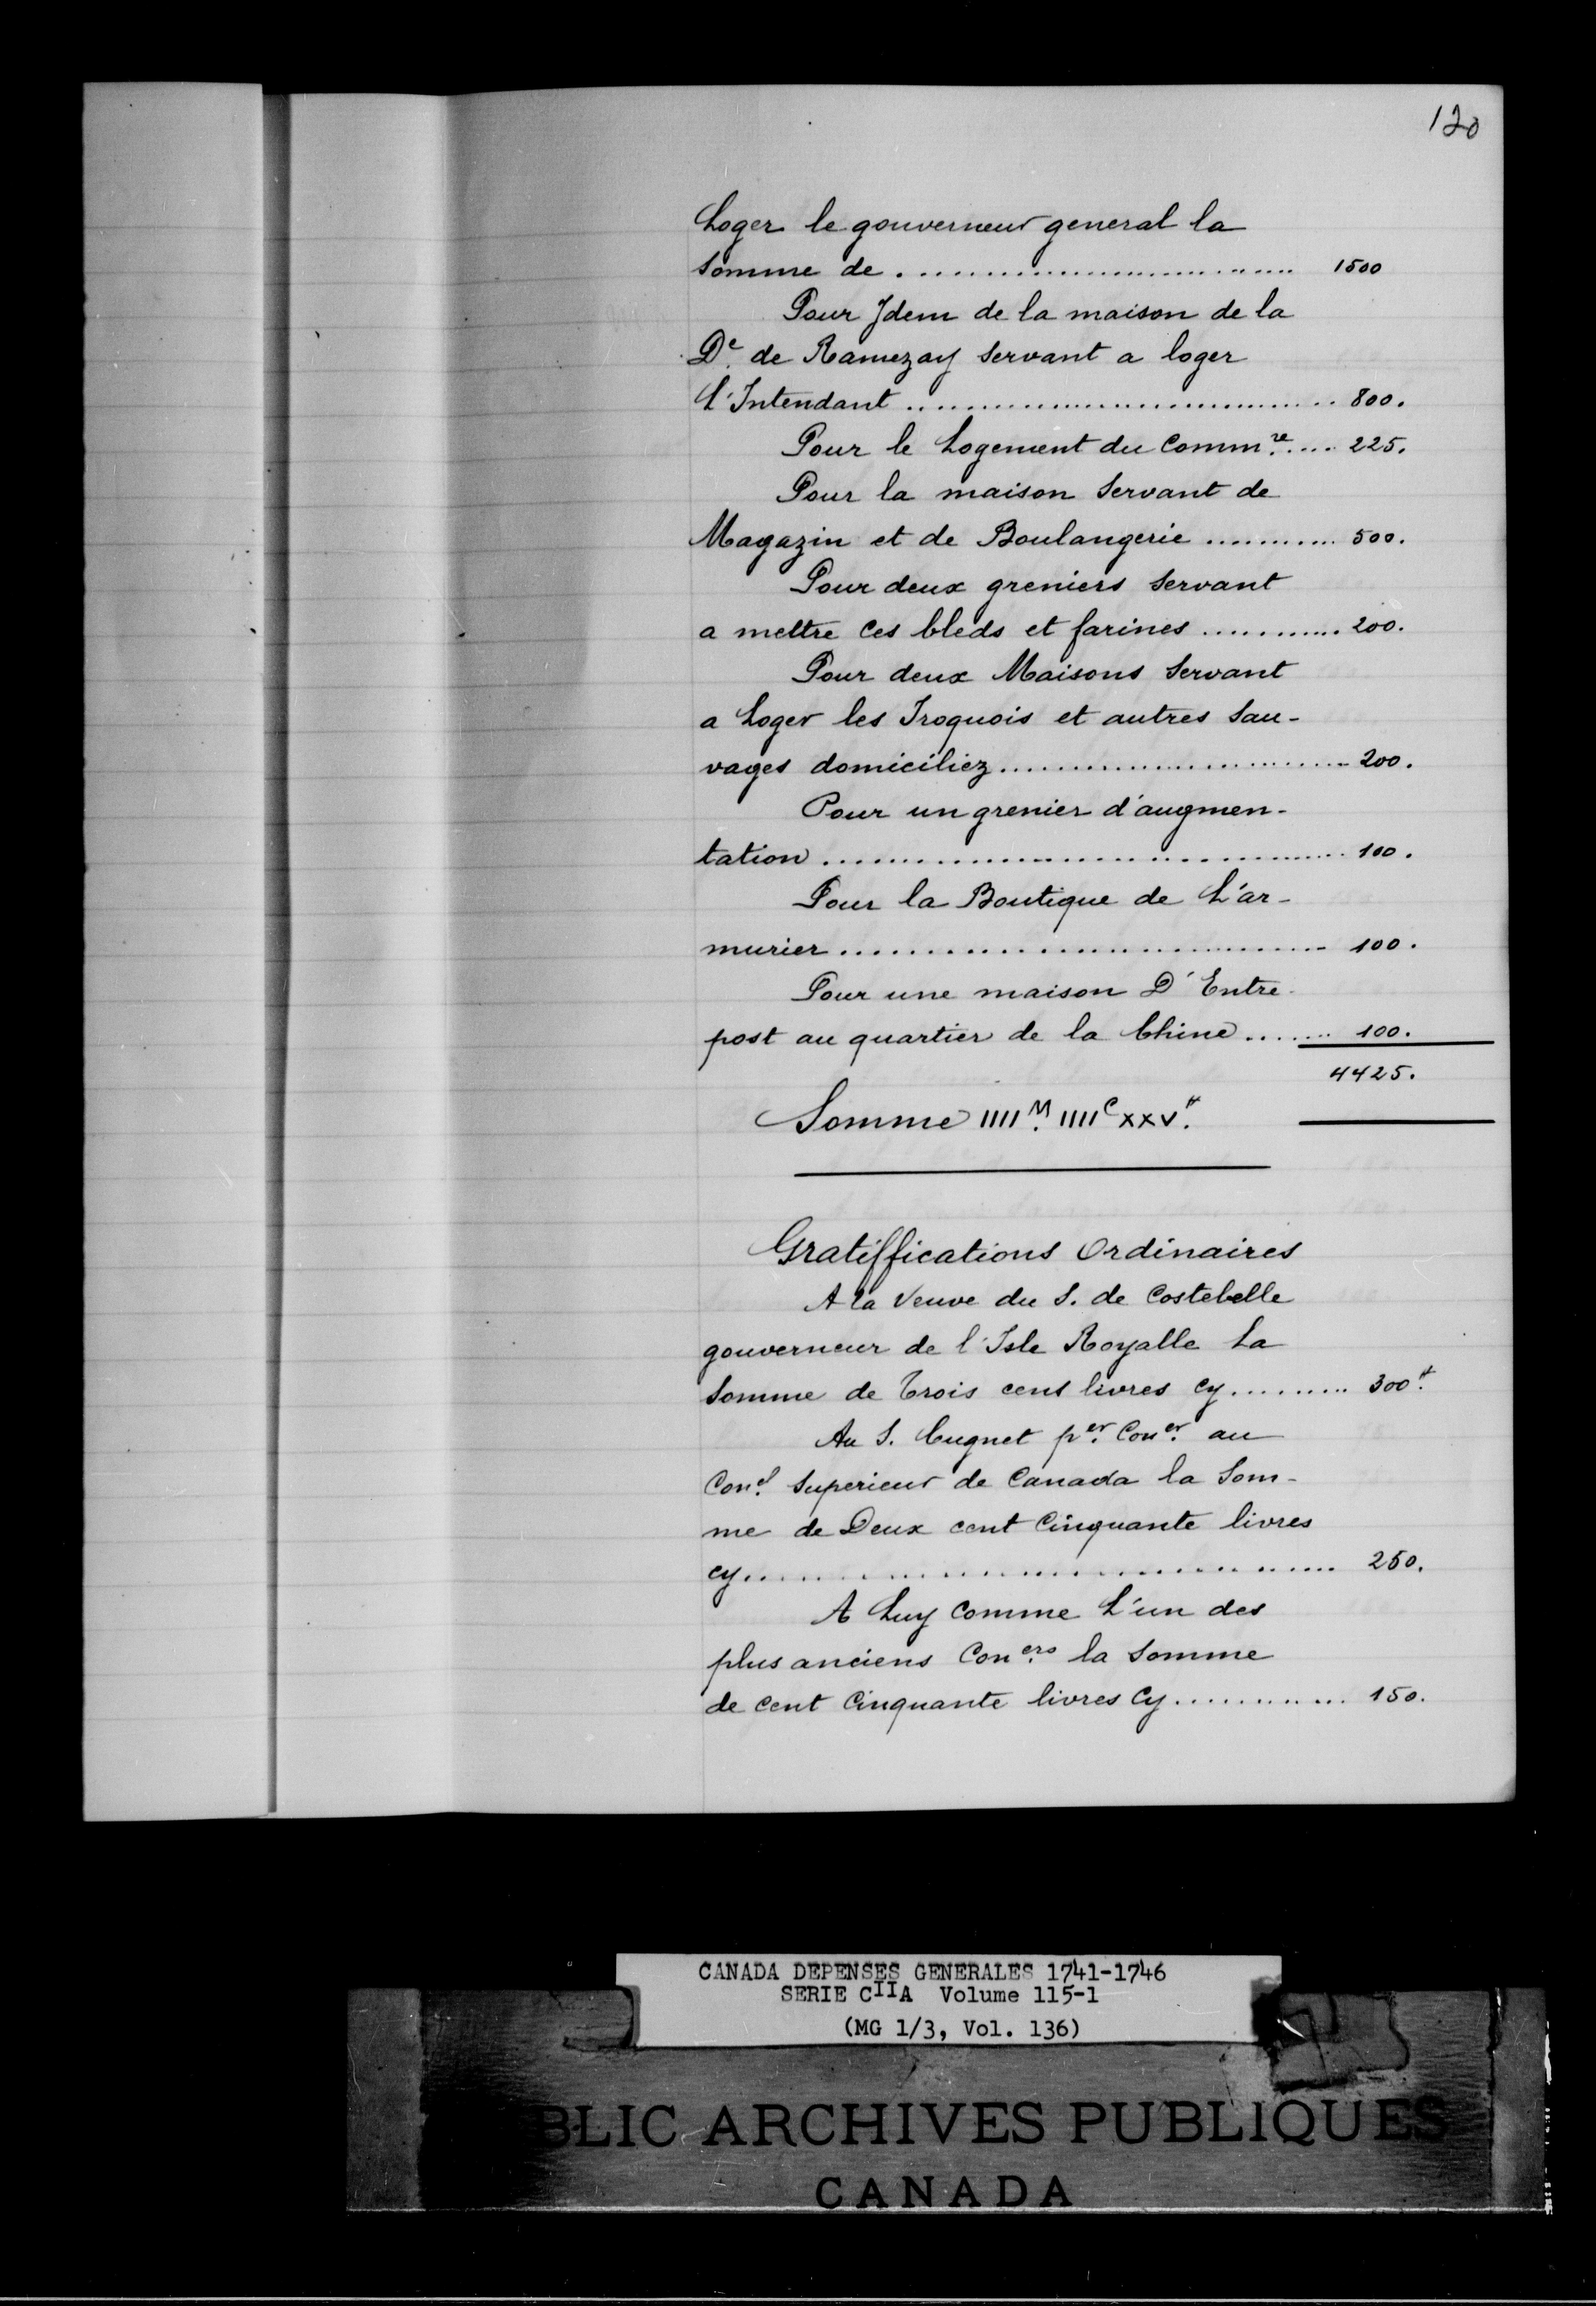 120
Loger le gouverneur general la
Somme de .............................. 1500
Pour Jdem de la maison de la
De. de Ramezay servant a loger
L'Intendant .............................. 800.
Pour le Logement du Commre..... 225.
Pour la maison Servant de
Magazin et de Boulangerie ............ 500.
Pour deux greniers servant
a mettre ces bleds et farines ............ 200.
Pour deux Maisons Servant
a Loger les Iroquois et autres Sau-
vages domiciliez.............................. 200.
Pour un grenier d'augmen-
tation .............................. 100.
Pour la Boutique de L'ar-
murier .............................. 100.
Pour une maison D'Entre-
post au quartier de la Chine ........ 100.
4425.
Somme IIIIM. IIIIC XXV.#
Gratiffications Ordinaires
A la Veuve du S. de Costebelle
gouverneur de l'Isle Royalle La
Somme de Trois cens livres cy .......... 300.#
Au S. Cugnet per. Coner. au
Conel. Superieur de Canada la Som-
me de Deux cent Cinquante livres
cy .............................. 250.
A Luy Comme L'un des
plus anciens Coners. la Somme
de cent Cinquante livres Cy ............. 150.
CANADA DEPENSES GENERALES 1741-1746
SERIE CIIA Volume 115-1
(MG 1/3, Vol. 136)
BLIC ARCHIVES PUBLIQUES
CANADA